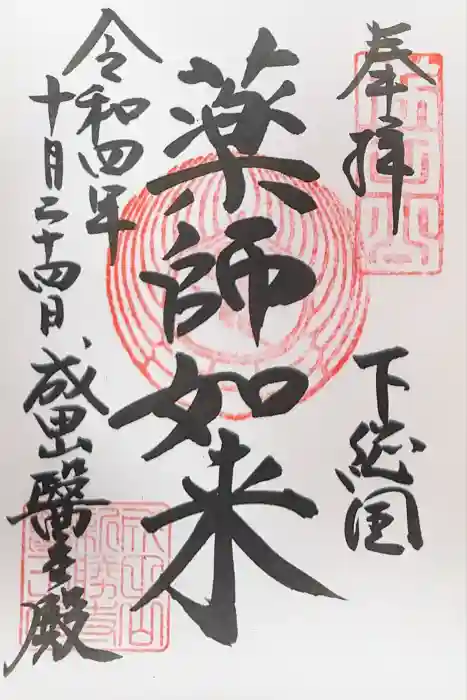 奉拝
下総国
薬師如来
令和四年
十月二十四日
成田山
醫王殿